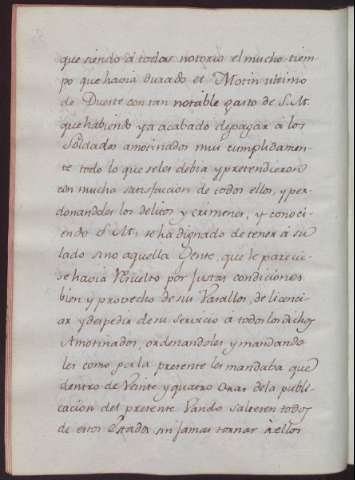 que siendo á todas notorio el mucho tiem
po que havia durado el Motin ultimo
de Duiste con tan notable gasto de S. M.
que habiendo ya acabado de pagar á los
Soldados amotinados mui cumplidamen
te todo lo que seles debia y pretendieron
con mucho satisfacion de todos ellos, y per
donandoles los delitos y crimenes, y conoci
endo S. M. se ha dignado de tener á su
lado sino aquella Gente, que le parecie
se havia Resuelto por Justas condiciones
bien y provecho de sus Vasallos, de licenci
ar y despedir de su servicio a todos los dichos
Amotinados, ordenandoles y mandando
les como por la presente les mandaba que
dentro de Veinte y quatro Oras dela publi
cacion del presente Vando saliesen todos
de estos Estados sin Jamas tornar á ellos